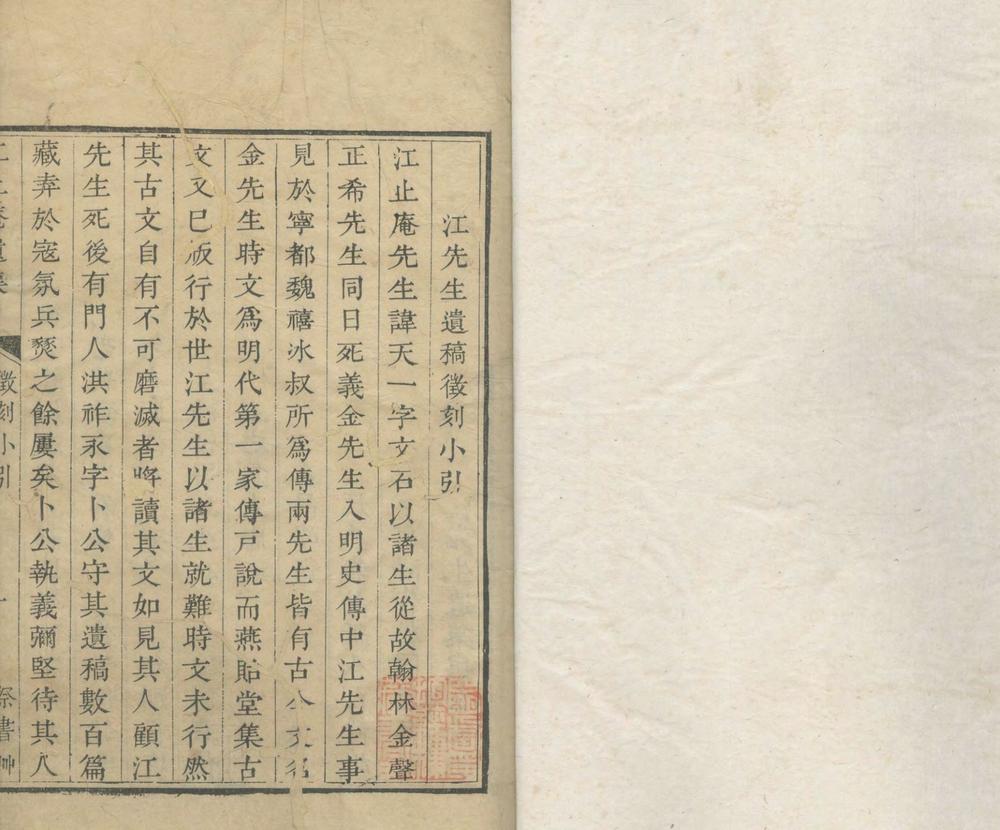 江先生遺稿徵刻小引
江止庵先生諱天一字文石以諸生從故翰林金聲
正希先生同日死義金先生入明史傳中江先生事
見於寧都魏禧冰叔所爲傳兩先生皆有古今文名
金先生時文爲明代第一家傳戸說而燕貽堂集古
文又巳版行於世江先生以諸生就難時文未行然
其古文自有不可磨滅者畔讀其文如見其人顧江
先生死後有門人洪祚永字卜公守其遺稿數百篇
藏弆於寇氛兵燹之餘屢矣卜公執義彌堅待其人
徵刻小引
祭書艸